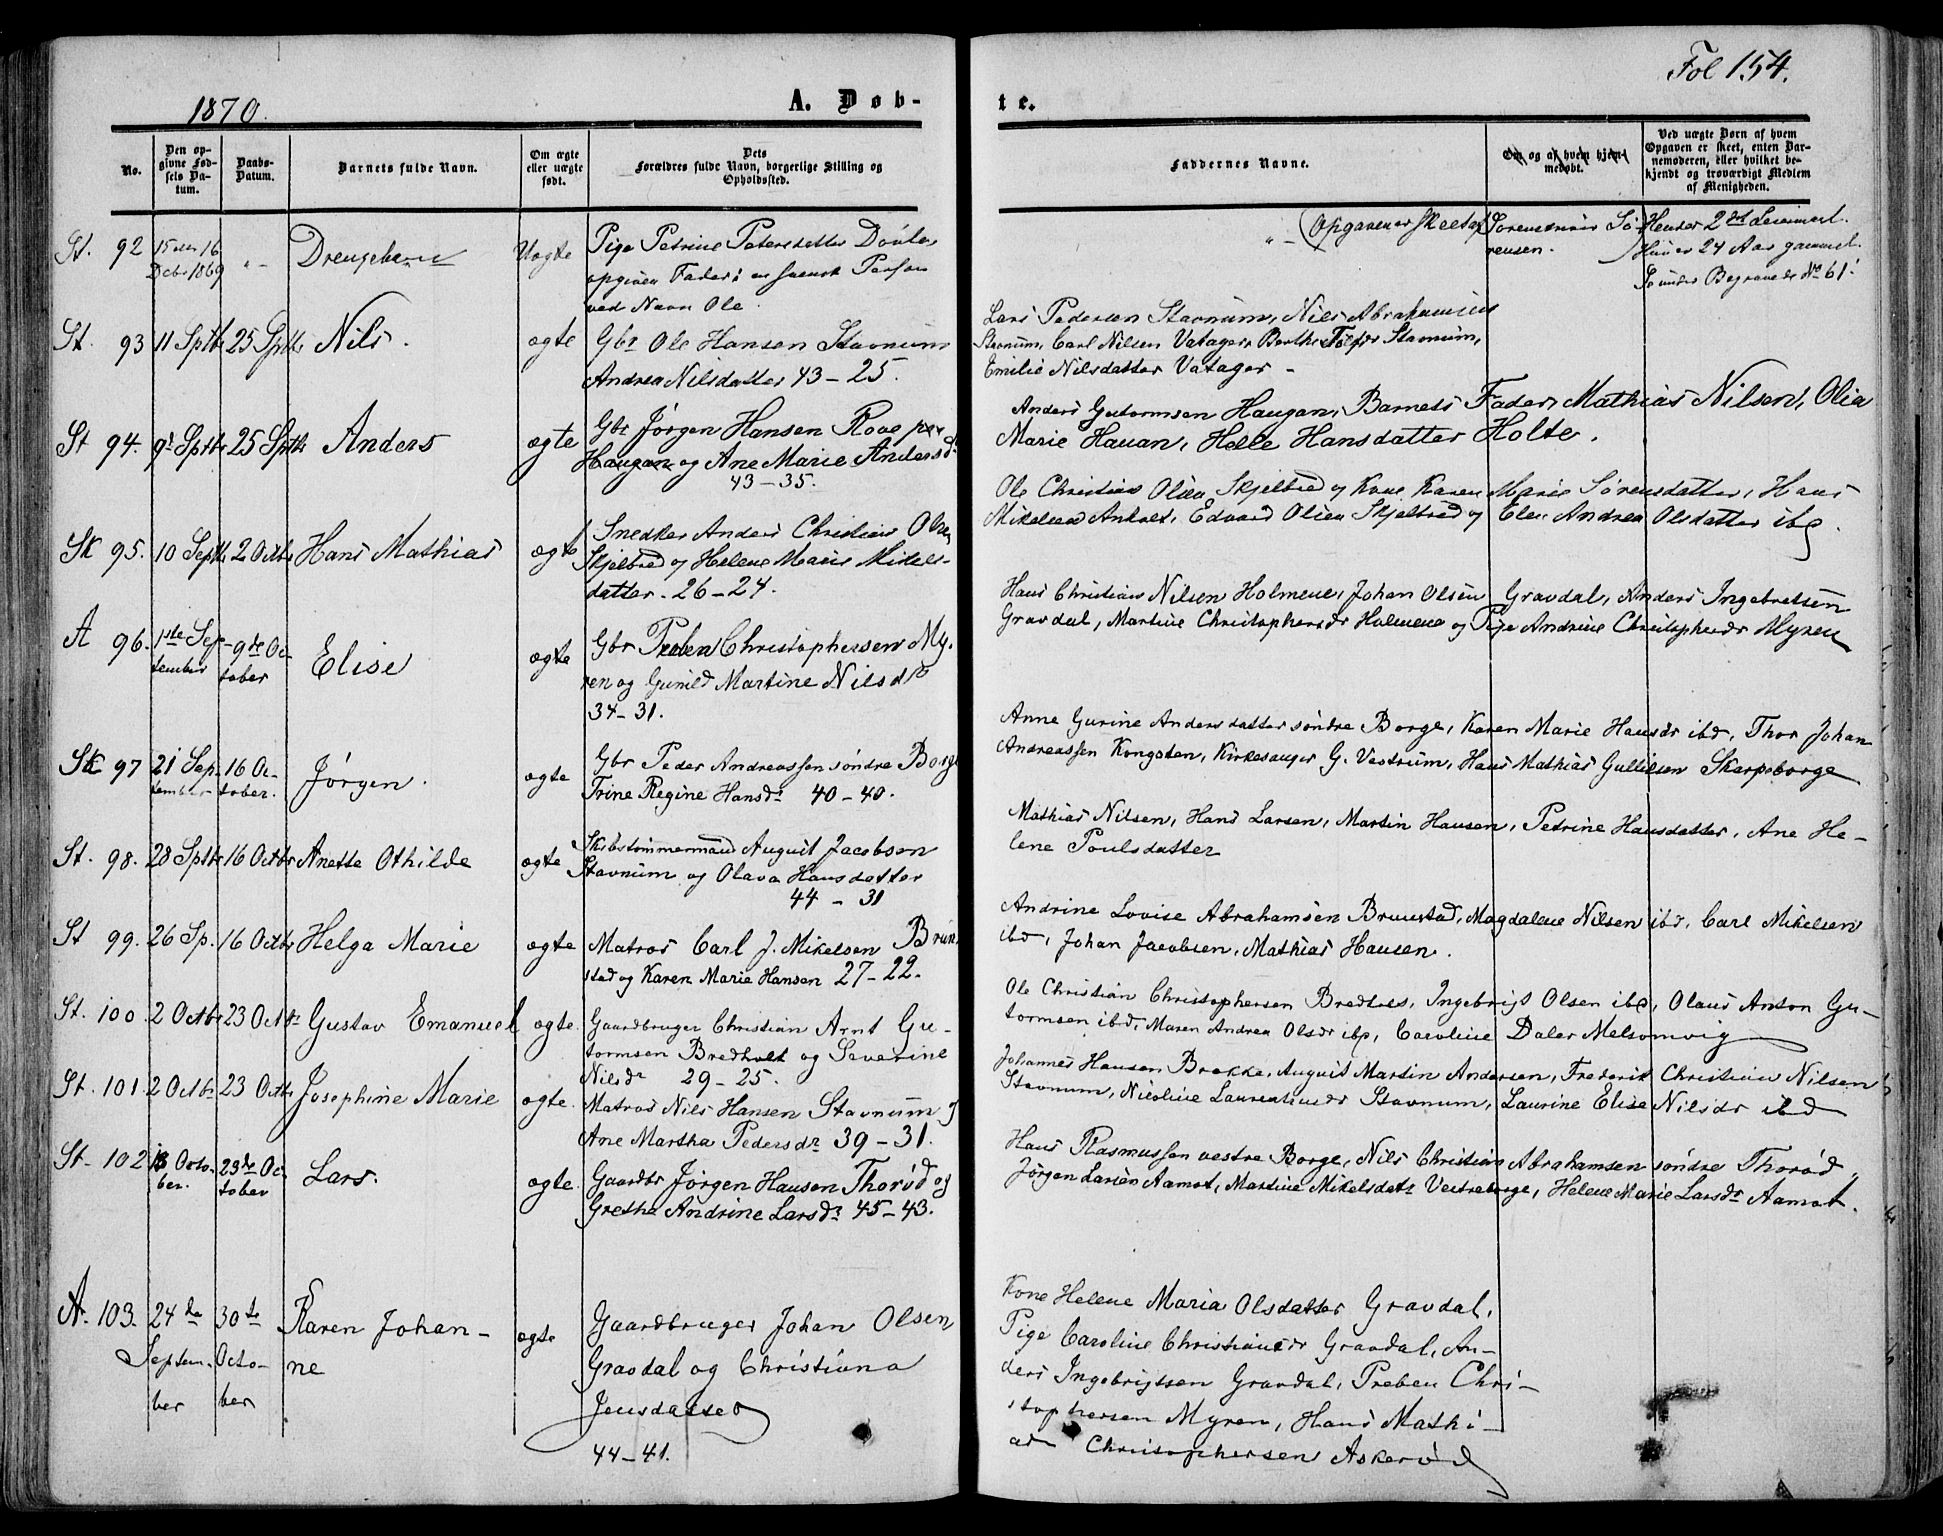 1870.
A. Døb-
te.
Fol 154.
No.
Den op-
givne Fød-
sels Da-
tum.
Daabs-
Datum.
Barnets fulde Navn.
Om ægte
eller uægte
født.
Dets
Forældres fulde Navn, borgerlige Stilling og
Opholdssted.
Faddernes Navne.
Om og af hvem hjem-
medøbt.
Ved uægte Børn af hvem
Opgaven er skeet, enten Bar-
nemoderen, eller hvilket be-
kjendt og troværdigt Medlem
af Menigheden.
St. 92
Debr 1869
Drengebarn
Uægte
Pige Petrine Petersdatter
opgiven Fader: en svensk Person
ved Navn Ole
Opgaven er skeet af
Sørensen.
24 Aar gammel.
So under Begravede No 61.
St. 93
11 Septbr
25 Septbr
Nils.
ægte
Gbr Ole Hansen Stavnum
Andrea Nilsdatter 43-25.
Lars Pedersen Stavnum, Nils Abrahamsen
Stavnum, Carl Nilsen Vatager, Stavnum,
Emilie Nilsdatter Vatager -
St 94.
9d Septbr
25 Septbr
Anders
ægte
Gbr Jørgen Hansen
Haugan og Ane Marie Andersdr
43-35.
Anders Gutormsen Haugan, Barnets Fader, Mathias Nilsen, Olia
Marie Hauan, Helle Hansdatter Holte.
Sk 95.
10 Septbr
2 Octbr
Hans Mathias
ægte
Snedker Anders Christian Olsen
Skjelbred og Helene Marie Mikels-
datter. 26-24.
Ole Christian Olsen Skjelbred og Kone Karen Marie Sørensdatter, Hans
Mikelsen Anholt, Edvard Olsen Skjelbred og Elen Andrea Olsdatter ibd.
A 96.
1ste Sep-
tember
9de Oc-
tober
Elise
ægte
Gbr Preben Christophersen My-
ren og Gunild Martine Nilsdr
34-31.
Hans Christian Nilsen Holmene, Johan Olsen Gravdal, Anders Ingebretsen
Gravdal, Martine Christophersdr Holmene og Pige Andrine Christophersdr Myren
Sk 97
21 Sep-
tember
16 Oc-
tober.
Jørgen.
ægte
Gbr Peder Andreassen søndre Borge
Trine Regine Hansdr 40-40.
Anne Gurine Andersdatter søndre Borge, Karen Marie Hansdr ibd, Thor Johan
Andreassen Kongsten, Kirkesanger G. Vestrum, Hans Mathias Gullilsen Skarpeborge
St. 98.
28 Septbr
16 Octbr
Anette Othilde
ægte
Skibstømmermand August Jacobsen
Stavnum og Olava Hansdatter
44 - 31
Mathias Nilsen, Hans Larsen, Martin Hansen, Petrine Hansdatter, Ane He-
lene Poulsdatter
St 99.
26 Sp.
16 Octbr
Helga Marie
ægte
Matros Carl J. Mikelsen Brun-
stad og Karen Marie Hansen 27-22.
Andrine Lovise Abrahamsen Brunstad, Magdalene Nilsen ibd, Carl Mikelsen
ibd, Johan Jacobsen, Mathias Hansen.
St. 100
2 Octbr
23 Octbr
Gustav Emanuel
ægte.
Gaardbruger Christian Arnt Gu-
tormsen Bredholt og Severine
Nilsdr 29-25.
Ole Christian Christophersen Bredholt, Ingebrigt Olsen ibd, Olaus Anton Gu-
tormsen ibd, Maren Andrea Olsdr ibd, Caroline Daler Melsomvig
St. 101.
2 Octbr
23 Octbr
Josephine Marie
ægte.
Matros Nils Hansen Stavnum og
Ane Martha Pedersdr 39-31.
Johannes Hansen Brekke, August Martin Andersen, Frederik Christian Nilsen
Stavnum, Nicoline Laurentiusdr Stavnum, Laurine Elise Nilsdr ibd
St. 102
Octo-
ber.
23de Oc-
tober
Lars.
ægte.
Gaardbr Jørgen Hansen Thorød og
Grethe Andrine Larsdr 45-43.
Hans Rasmussen vestre Borge, Nils Christian Abrahamsen søndre Thorød,
Jørgen Larsen Aamot, Martine Mikelsdatr Vestreborge, Helene Marie Larsdr Aamot.
A. 103.
24de
Septem-
ber
30te
Octo-
ber
Karen Johan-
ne
ægte
Gaardbruger Johan Olsen
Gravdal og Christiana
Jensdatter
44-41.
Kone Helene Maria Olsdatter Gravdal,
Pige Caroline Christiansdr Gravdal, An-
ders Ingebrigtsen Gravdal, Preben Chri-
stophersen Myren, Hans Mathi-
as Christophersen Askerød